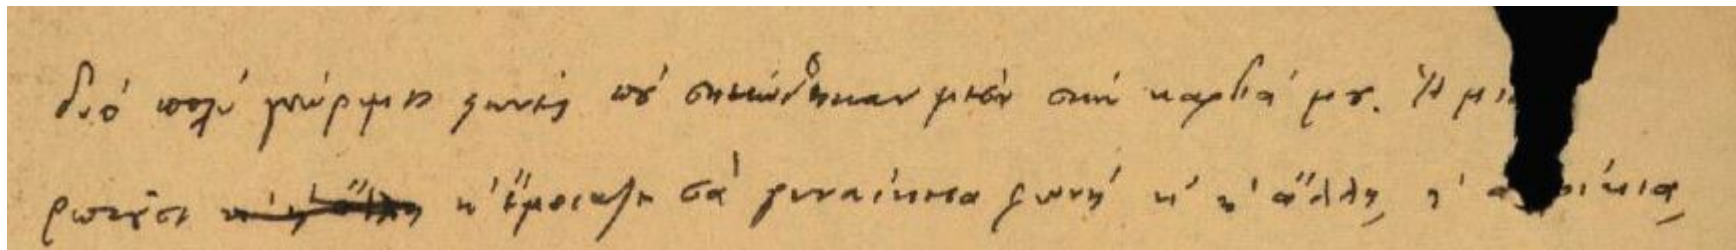 δυό πολύ γνώριμες φωνές πού σηκώθηκαν μέσα στήν καρδιά μου. Ἡ μιὰ
ρωτοῦσε κ' ἔμοιαζε σά γυναίκεια φωνή κ' ἡ ἄλλη,